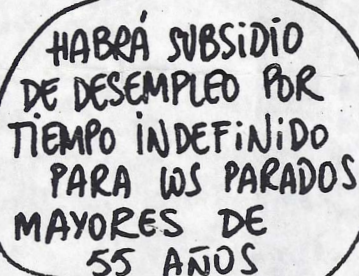 HABRÁ SUBSIDIO
DE DESEMPLEO POR
TIEMPO INDEFINIDO
PARA LOS PARADOS
MAYORES DE
55 AÑOS